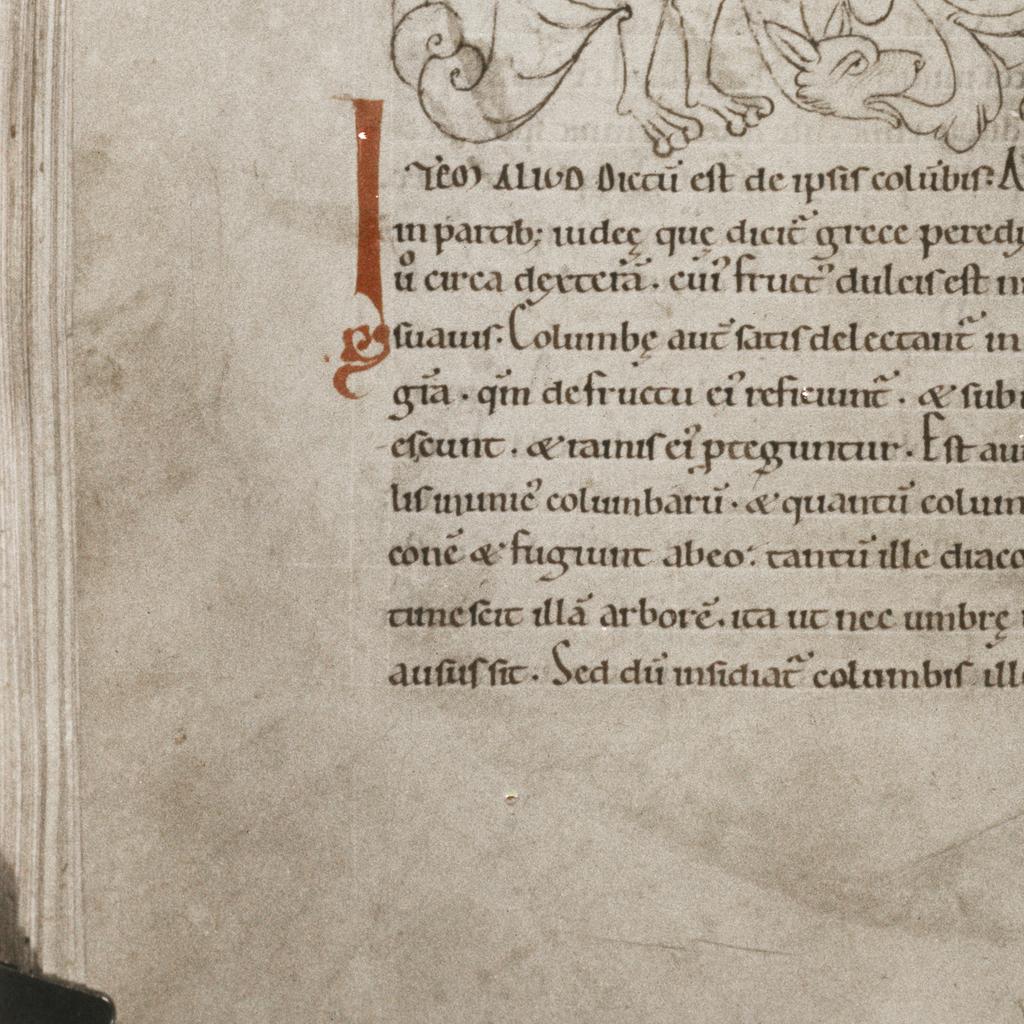 ITEM ALIUD Dictū est de ipsis colūbis: A
in partib; iudeę quę dicit̄ grece peredy
ů circa dexterā. cuiꝰ fructꝰ dulcis est
suauis. Columbę aut̄ satis delectant̄ in
gīa. qm̄ de fructu eiꝰ reficiunt̄. & sub
escunt. & ramis eiꝰ pteguntur. Est au
lis inimicꝰ columbarū. & quantū colum
conē & fugiunt abeo: tantū ille draco
timescit illā arborē. ita ut nec umbrę
ausus sit. Sed dū insidiat̄ columbis ille